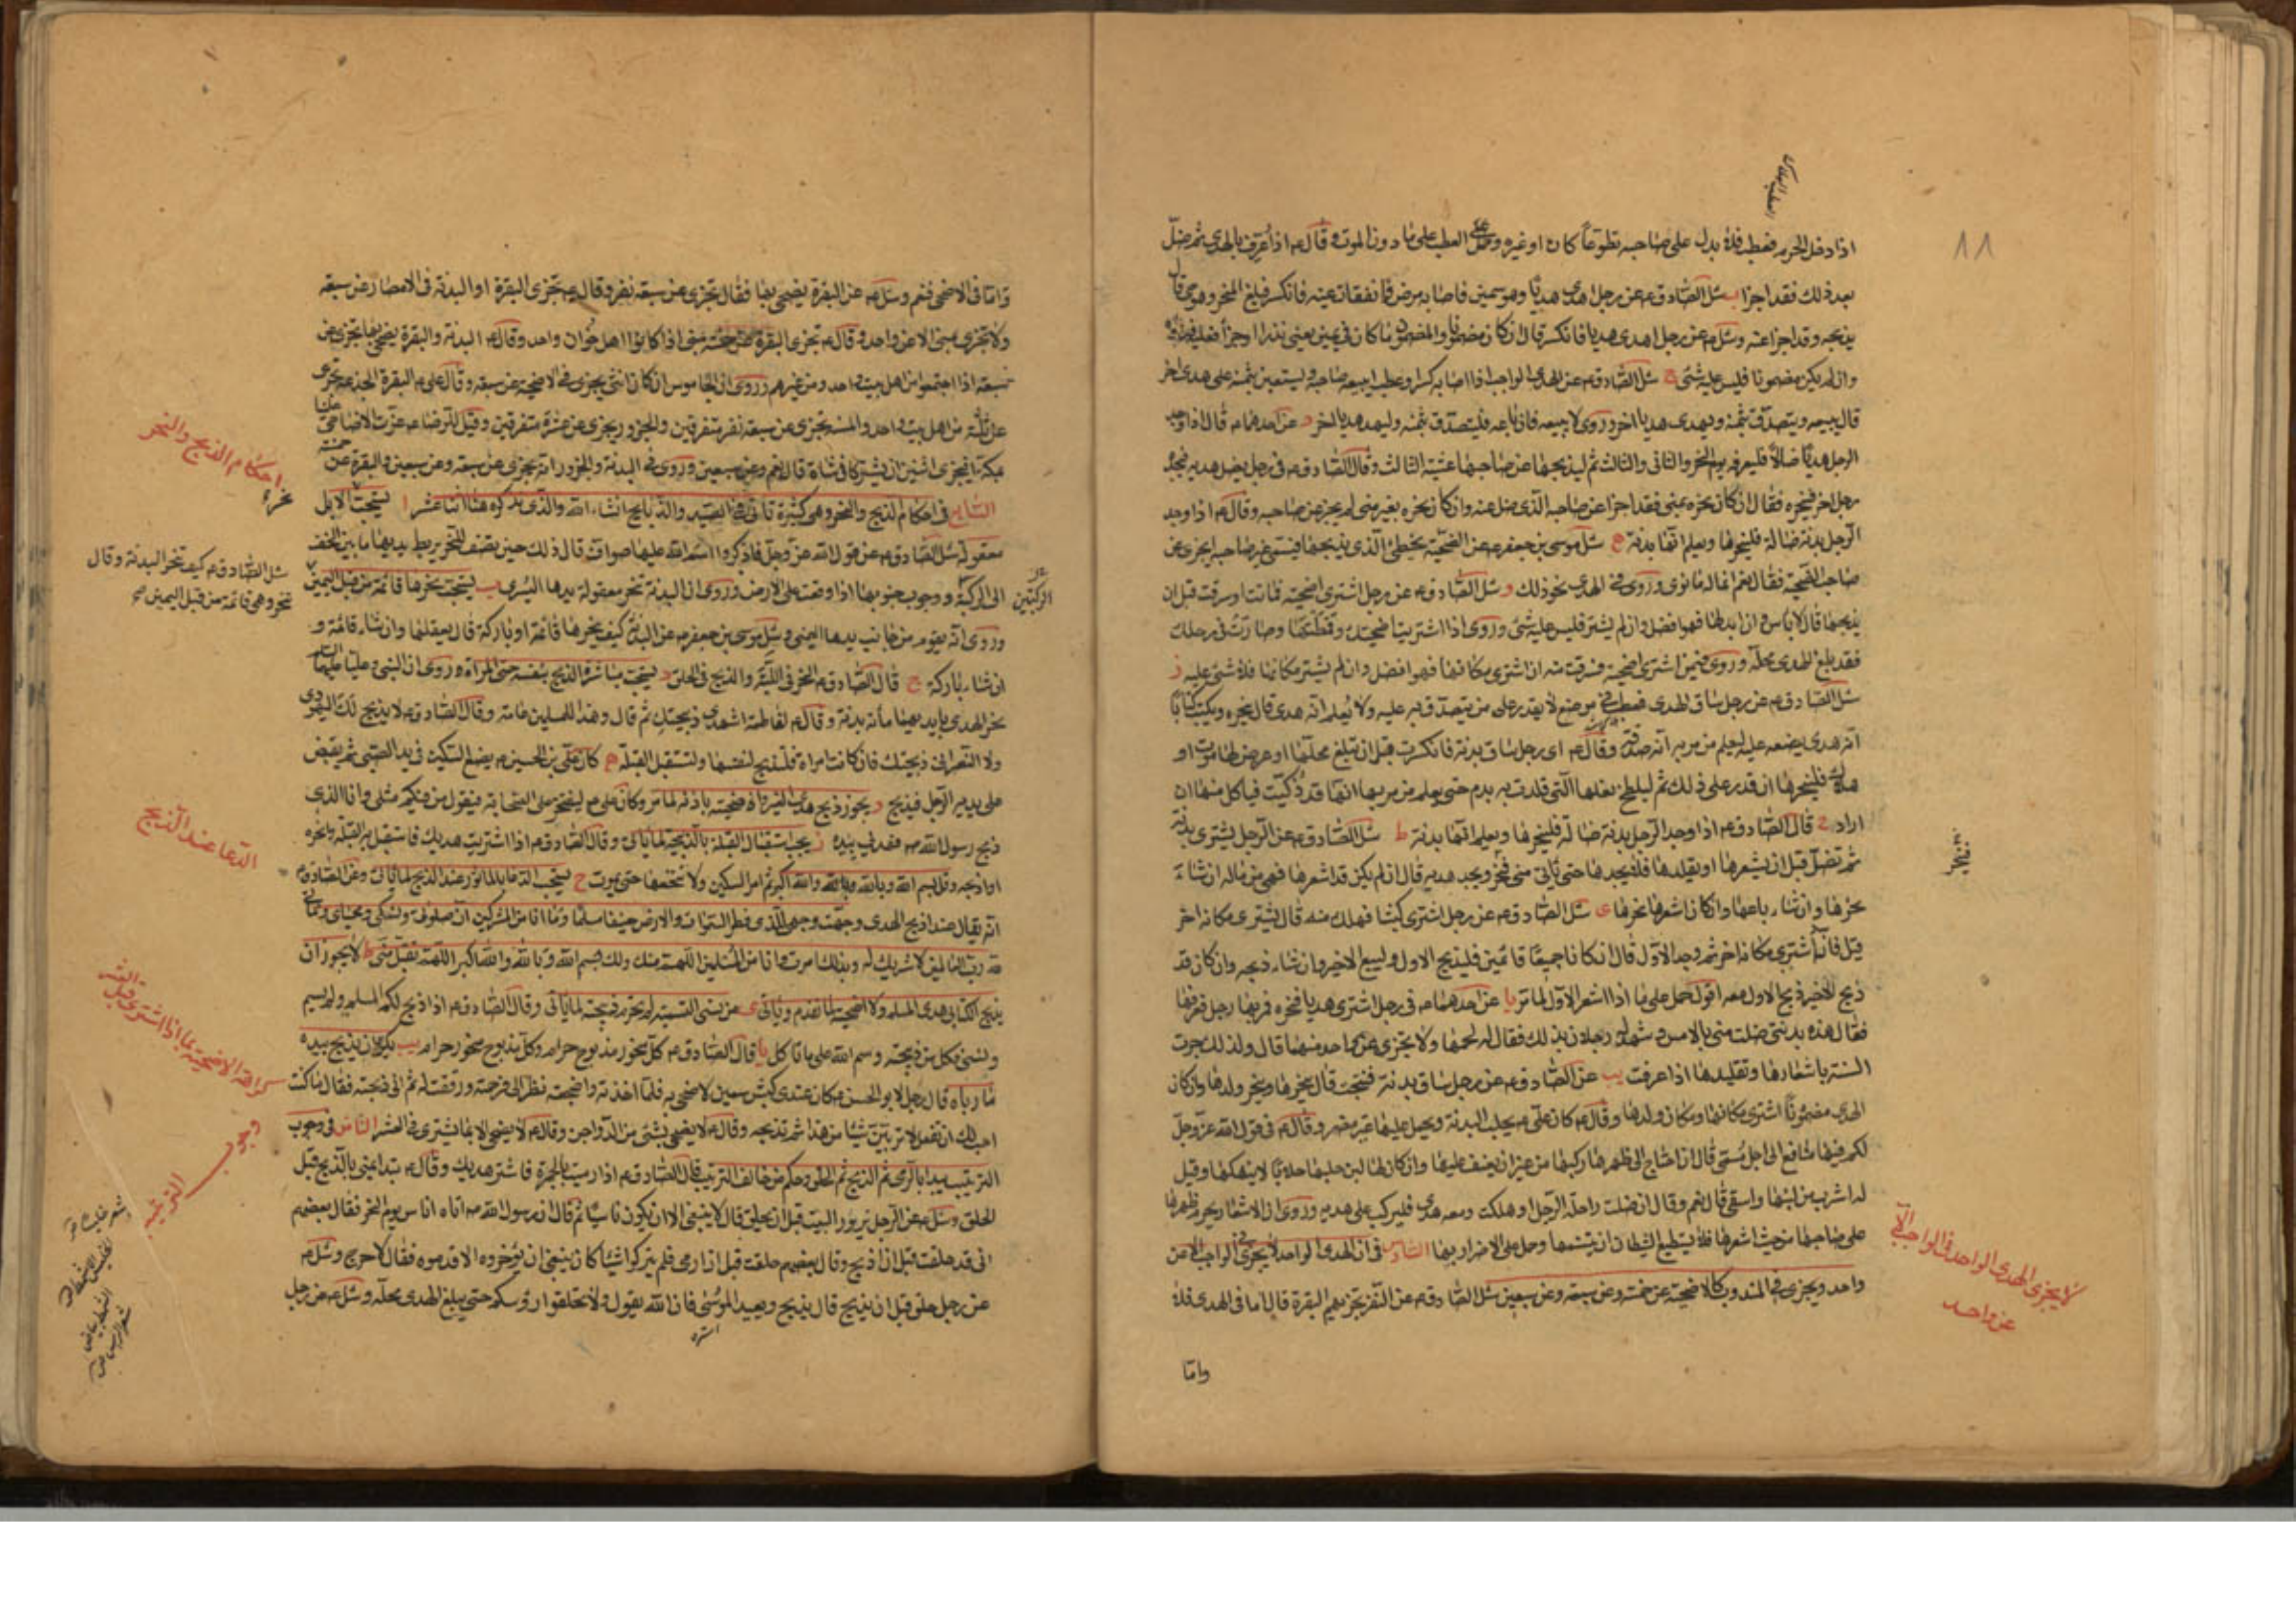 ١١
اذا دخل الحرم فعطب فلا بدل على صاحبه تطوعا كان او غيره وحمل العطب على ما دون الموت وقال ع اذا عرف بالهدى ثم ضل
بعد ذلك فقد اجزا ب سئل الصادق ع عن رجل اهدى هديا وهو سمين فاصابه مرض فانفقأت عينه فانكسر فبلغ المنحر وهو حى قال
يذبحه وقد اجزا عنه وسئل ع عن رجل اهدى هديا فانكسر قال ان كان مضمونا والمضمون ما كان فى يمين يعنى نذرا او جزآ فعليه فداؤه
وان لم يكن مضمونا فليس عليه شئ ج سئل الصادق ع عن الهدى الواجب اذا اصابه كسر او عطب ايبيعه صاحبه ويستعين بثمنه على هدى اخر
قال يبيعه ويتصدق بثمنه ويهدى هديا اخر وروى لا يبيعه فان باعه فليتصدق بثمنه وليهد هديا اخر د عن احدهما ع قال اذا وجد
الرجل هديا ضالا فليعرفه يوم النحر والثانى والثالث ثم ليذبحها عن صاحبها عشية الثالث وقال الصادق ع فى رجل يضل هديه فيجده
رجل اخر فينحره فقال ان كان نحره بمنى فقد اجزا عن صاحبه الذى ضل عنه وان كان نحره بغير منى لم يجز عن صاحبه وقال ع اذا وجد
الرجل بدنة ضالة فلينحرها ويعلم انها بدنة ه سئل موسى بن جعفر ع عن الضحية يخطئ الذى يذبحها فيسمى غير صاحبها ايجزى عن
صاحب الضحية فقال نعم انما له ما نوى وروى فى الهدى نحو ذلك و سئل الصادق ع عن رجل اشترى اضحية فماتت او سرقت قبل ان
يذبحها قال لا باس وان ابدلها فهو افضل وان لم يشتر فليس عليه شئ وروى اذا اشتريت اضحيتك وقمطتها وصارت فى رحلك
فقد بلغ الهدى محله وروى فيمن اشترى اضحية فسرقت منه ان اشترى مكانها فهو افضل وان لم يشتر مكانها فلا شئ عليه ز
سئل الصادق ع عن رجل ساق الهدى فعطب فى موضع لا يقدر على من يتصدق به عليه ولا يعلم انه هدى قال ينحره ويكتب كتابا
انه هدى يضعه عليه ليعلم من مر به انه صدقة وقال ع اى رجل ساق بدنة فانكسرت قبل ان تبلغ محلها او عرض لها موت او
هلاك فلينحرها ان قدر على ذلك ثم ليلطخ نعلها التى قلدت به بدم حتى يعلم من مر بها انها قد ذكيت فياكل منها ان
اراد ح قال الصادق ع اذا وجد الرجل بدنة ضالة فلينحرها ويعلم انها بدنة ط سئل الصادق ع عن الرجل يشترى بدنة
ثم تضل قبل ان يشعرها او يقلدها فلا يجدها حتى ياتى منى فينحر ويجد هديه قال ان لم يكن قد اشعرها فهى من ماله ان شاء
نحرها وان شاء باعها وان كان اشعرها نحرها ى سئل الصادق ع عن رجل اشترى كبشا فهلك منه قال يشترى مكانه اخر
قيل فان اشترى مكانه اخر ثم وجد الاول قال ان كانا جميعا قائمين فليذبح الاول وليبع الاخير وان شاء ذبحه وان كان قد
ذبح الاخير ذبح الاول معه اقول حمل على ما اذا اشعر الاول لما مر يا عن احدهما ع فى رجل اشترى هديا فنحره فمر بها رجل فعرفها
فقال هذه بدنتى ضلت منى بالامس وشهد له رجلان بذلك فقال له لحمها ولا يجزى عن واحد منهما قال ولذلك جرت
السنة باشعارها وتقليدها اذا عرفت يب عن الصادق ع عن رجل ساق بدنة فنتجت قال ينحرها وينحر ولدها وان كان
الهدى مضمونا اشترى مكانها ومكان ولدها وقال ع كان على ع يحلب البدنة ويحمل عليها غير مضر وقال ع فى قول الله عز وجل
لكم فيها منافع الى اجل مسمى قال ان احتاج الى ظهرها ركبها من غير ان يعنف عليها وان كان لها لبن حلبها حلابا لا ينهكها وقيل
له اشرب من لبنها واسقى قال نعم وقال ان ضلت راحلة الرجل او هلكت ومعه هدى فليركب على هديه وروى ان الاشعار يحرم ظهرها
على صاحبها من حيث اشعرها فلا يستطيع الشيطان ان يتسنمها وحمل على الاضرار بها السادس فى ان الهدى الواحد لا يجزى فى الواجب الا عن
واحد ويجزى فى المندوب كالاضحية عن خمسة وعن سبعة وعن سبعين سئل الصادق ع عن النفر تجزيهم البقرة قال اما فى الهدى فلا
لا يجزى الهدى الواحد فى الواجب الا
عن واحد
واما
واما فى الاضحى فنعم وسئل ع عن البقرة يضحى بها فقال تجزى عن سبعة نفر وقال ع تجزى البقرة او البدنة فى الامصار عن سبعة
ولا تجزى بمنى الا عن واحد وقال ع تجزى البقرة عن خمسة بمنى اذا كانوا اهل خوان واحد وقال ع البدنة والبقرة يضحى بها تجزى عن
سبعة اذا اجتمعوا من اهل بيت واحد ومن غيرهم وروى ان الجاموس ان كان انثى يجزى فى الاضحية عن سبعة وقال على ع البقرة الجذعة تجزى
عن ثلثة من اهل بيت واحد والمسنة تجزى عن سبعة نفر متفرقين والجزور يجزى عن عشرة متفرقين وقيل للرضا ع عزت الاضاحى علينا
بمكة ايجزى اثنين ان يشتركا فى شاة قال نعم وعن سبعين وروى فى البدنة والجزور انه يجزى عن سبعة وعن سبعين والبقرة عن خمسة
السابع فى احكام الذبح والنحر وهى كثيرة تاتى فى الصيد والذبايح انشاء الله والذى نذكره هنا اثنا عشر ا يستحب الابل
معقولة سئل الصادق ع عن قول الله عز وجل فاذكروا اسم الله عليها صواف قال ذلك حين تصف للنحر يربط يديها ما بين الخف
الى الركبة ووجوب جنوبها اذا وقعت على الارض وروى ان البدنة تنحر معقولة يدها اليسرى ب يستحب نحرها قائمة من قبل اليمين
وروى انه يقوم من جانب يدها اليمنى وسئل موسى بن جعفر ع عن البدنة كيف ينحرها قائمة او باركة قال يعقلها وان شاء قائمة و
ان شاء باركة ج قال الصادق ع النحر فى اللبة والذبح فى الحلق د يستحب مباشرة الذبح بنفسه حتى المراة وروى ان النبى وعليا عليهما السلم
نحر الهدى بايديهما مأة بدنة وقال ع لفاطمة اشهدى ذبيحتك ثم قال وهذا للمسلمين عامة وقال الصادق ع لا يذبح لك اليهودى
ولا النصرانى ذبيحتك فان كانت امراة فلتذبح لنفسها ولتستقبل القبلة ه كان على بن الحسين ع يضع السكين فى يد الصبى ثم يقبض
على يديه الرجل فيذبح و يجوز ذبح هدى الغير واضحيته باذنه لما مر وكان على ع يفتخر على الصحابة فيقول من فيكم مثلى وانا الذى
ذبح رسول الله ص هديى بيده ز يجب استقبال القبلة بالذبيحة لما ياتى وقال الصادق ع اذا اشتريت هديك فاستقبل به القبلة وانحره
او اذبحه وقل بسم الله وبالله والله اكبر ثم امر السكين ولا تنخعها حتى تموت ح يستحب الدعا بالماثور عند الذبح لما ياتى وعن الصادق ع
انه يقال عند ذبح الهدى وجهت وجهى للذى فطر السموات والارض حنيفا مسلما وما انا من المشركين ان صلوتى ونسكى ومحياى ومماتى
لله رب العالمين لا شريك له وبذلك امرت وانا من المسلمين اللهم منك ولك بسم الله وبالله والله اكبر اللهم تقبل منى ط لا يجوز ان
يذبح الكتابى هدى المسلم ولا اضحيته لما تقدم وياتى ى من نسى التسمية لم تحرم ذبيحته لما ياتى وقال الصادق ع اذا ذبح لكم المسلم ولم يسم
ونسى فكل من ذبيحته وسم الله على ما تاكل يا قال الصادق ع كل منحور مذبوح حرام وكل مذبوح منحور حرام يب يكره ان يذبح بيده
ما رباه قال رجل لابو الحسن ع كان عندى كبش سمين لاضحى به فلما اخذته واضجعته نظر الى فرحمته ورققت له ثم انى ذبحته فقال ما كنت
احب لك ان تفعل لا تربين شيئا من هذا ثم تذبحه وقال ع لا يضحى بشئ من الدواجن وقال ع لا يضحى الا بما يشترى فى العشر الثامن فى وجوب
الترتيب يبدا بالرمى ثم الذبح ثم الحلق وحكم من خالف الترتيب قال الصادق ع اذا رميت الجمرة فاشتر هديك وقال ع تبدا بمنى بالذبح قبل
الحلق وسئل ع عن الرجل يزور البيت قبل ان يحلق قال لا ينبغى الا ان يكون ناسيا ثم قال ان رسول الله ص اتاه اناس يوم النحر فقال بعضهم
انى قد حلقت قبل ان اذبح وقال بعضهم حلقت قبل ان ارمى فلم يتركوا شيئا كان ينبغى ان يؤخروه الا قدموه فقال لا حرج وسئل ع
عن رجل حلق قبل ان يذبح قال يذبح ويعيد الموسى فان الله يقول ولا تحلقوا رؤسكم حتى يبلغ الهدى محله وسئل ع عن رجل
احكام الذبح والنحر
نحره
سئل الصادق ع كيف تنحر البدنة وقال
تنحر وهى قائمة من قبل اليمين صح
الركبتين
الدعا عند الذبح
كراهة الاضحية بما اذا اشترى
وجوب
الترتيب
اشتره